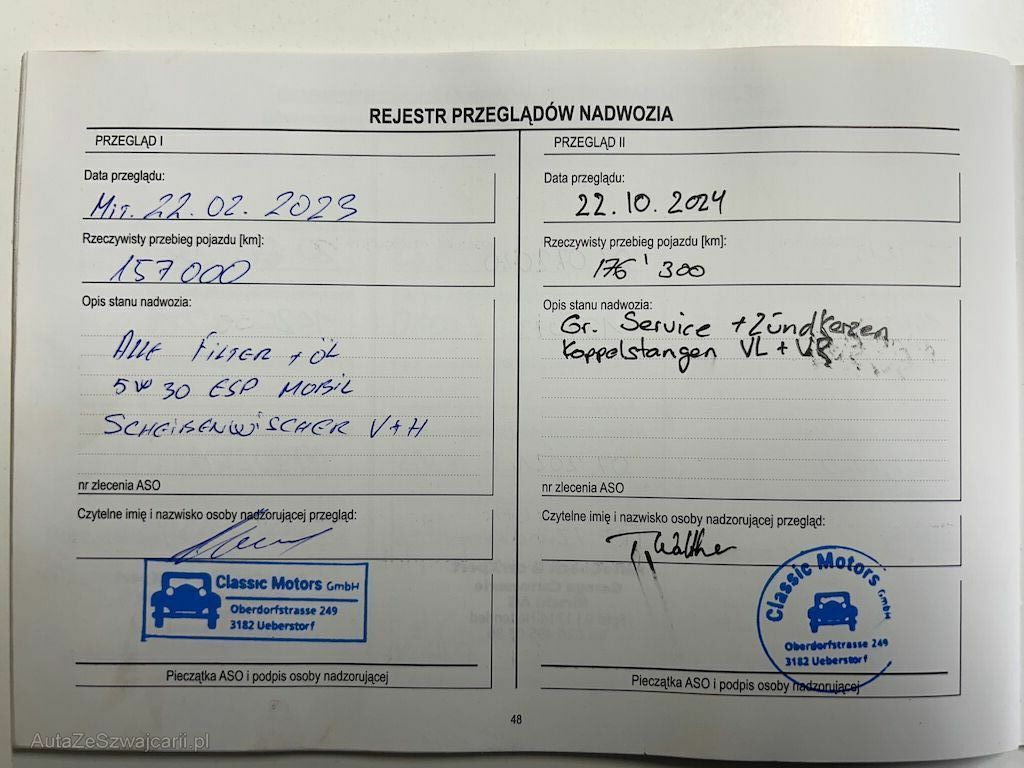 REJESTR PRZEGLĄDÓW NADWOZIA
PRZEGLĄD I
Data przeglądu:
Mit. 22.02.2023
Rzeczywisty przebieg pojazdu [km]:
157000
Opis stanu nadwozia:
Alle Filter + Öl
5W30 ESP Mobil
Scheibenwischer V+H
nr zlecenia ASO
Czytelne imię i nazwisko osoby nadzorującej przegląd:
Classic Motors GmbH
Oberdorfstrasse 249
3182 Ueberstorf
Pieczątka ASO i podpis osoby nadzorującej
PRZEGLĄD II
Data przeglądu:
22.10.2024
Rzeczywisty przebieg pojazdu [km]:
176'300
Opis stanu nadwozia:
Gr. Service + Zündkerzen
Koppelstangen VL + VR
nr zlecenia ASO
Czytelne imię i nazwisko osoby nadzorującej przegląd:
Classic Motors GmbH
Oberdorfstrasse 249
3182 Ueberstorf
Pieczątka ASO i podpis osoby nadzorującej
48
AutaZeSzwajcarii.pl